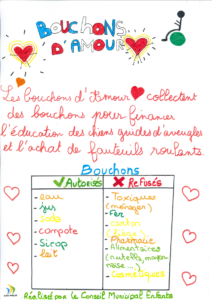 BOUCHONS
D'AMOUR
Les bouchons d'Amour collectent
des bouchons pour financer
l'éducation des chiens guides d'aveugles
et l'achat de fauteuils roulants.
Bouchons
Autorisés Refusés
- eau
- jus
- soda
- compote
- Sirop
- lait
- Toxiques
(ménager)
- Fer
- carton
- Pharmacie
- Alimentaires
(nutella, mayon
naise...)
- Cosmétiques
Réalisé par le Conseil Municipal Enfants